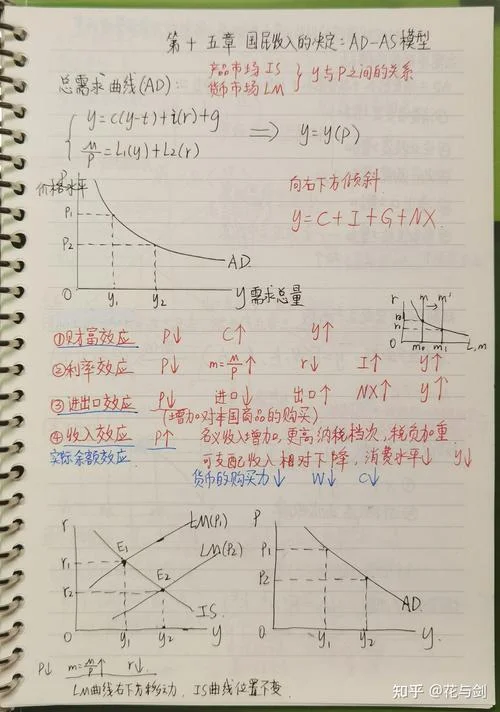 第十五章 国民收入的决定：AD-AS模型
总需求曲线(AD)：
产品市场 IS
货币市场 LM
y与P之间的关系
y=c(y-t)+i(r)+g
M/P=L1(y)+L2(r)
⟹ y=y(P)
价格水平 P
P1
P2
0
y1
y2
AD
y需求总量
向右下方倾斜
y=C+I+G+NX
r
m
m'
0
m0
m1
L,m
①财富效应 P↓ C↑ y↑
②利率效应 P↓ m=M/P↑ r↓ I↑ y↑
③进出口效应 P↓ 进口↓ 出口↑ NX↑ y↑
(增加对本国商品的购买)
④收入效应 P↑ 名义收入增加，更高纳税档次，税负加重
可支配收入相对下降，消费水平↓ y↓
实际余额效应 货币的购买力↓ W↓ C↓
r
r1
r2
0
E1
E2
LM(P1)
LM(P2)
IS
y1
y2
y
P
P1
P2
0
y1
y2
AD
y
P↓ m=M/P↑ r↓
LM曲线右下方移动，IS曲线位置不变
知乎 @花与剑